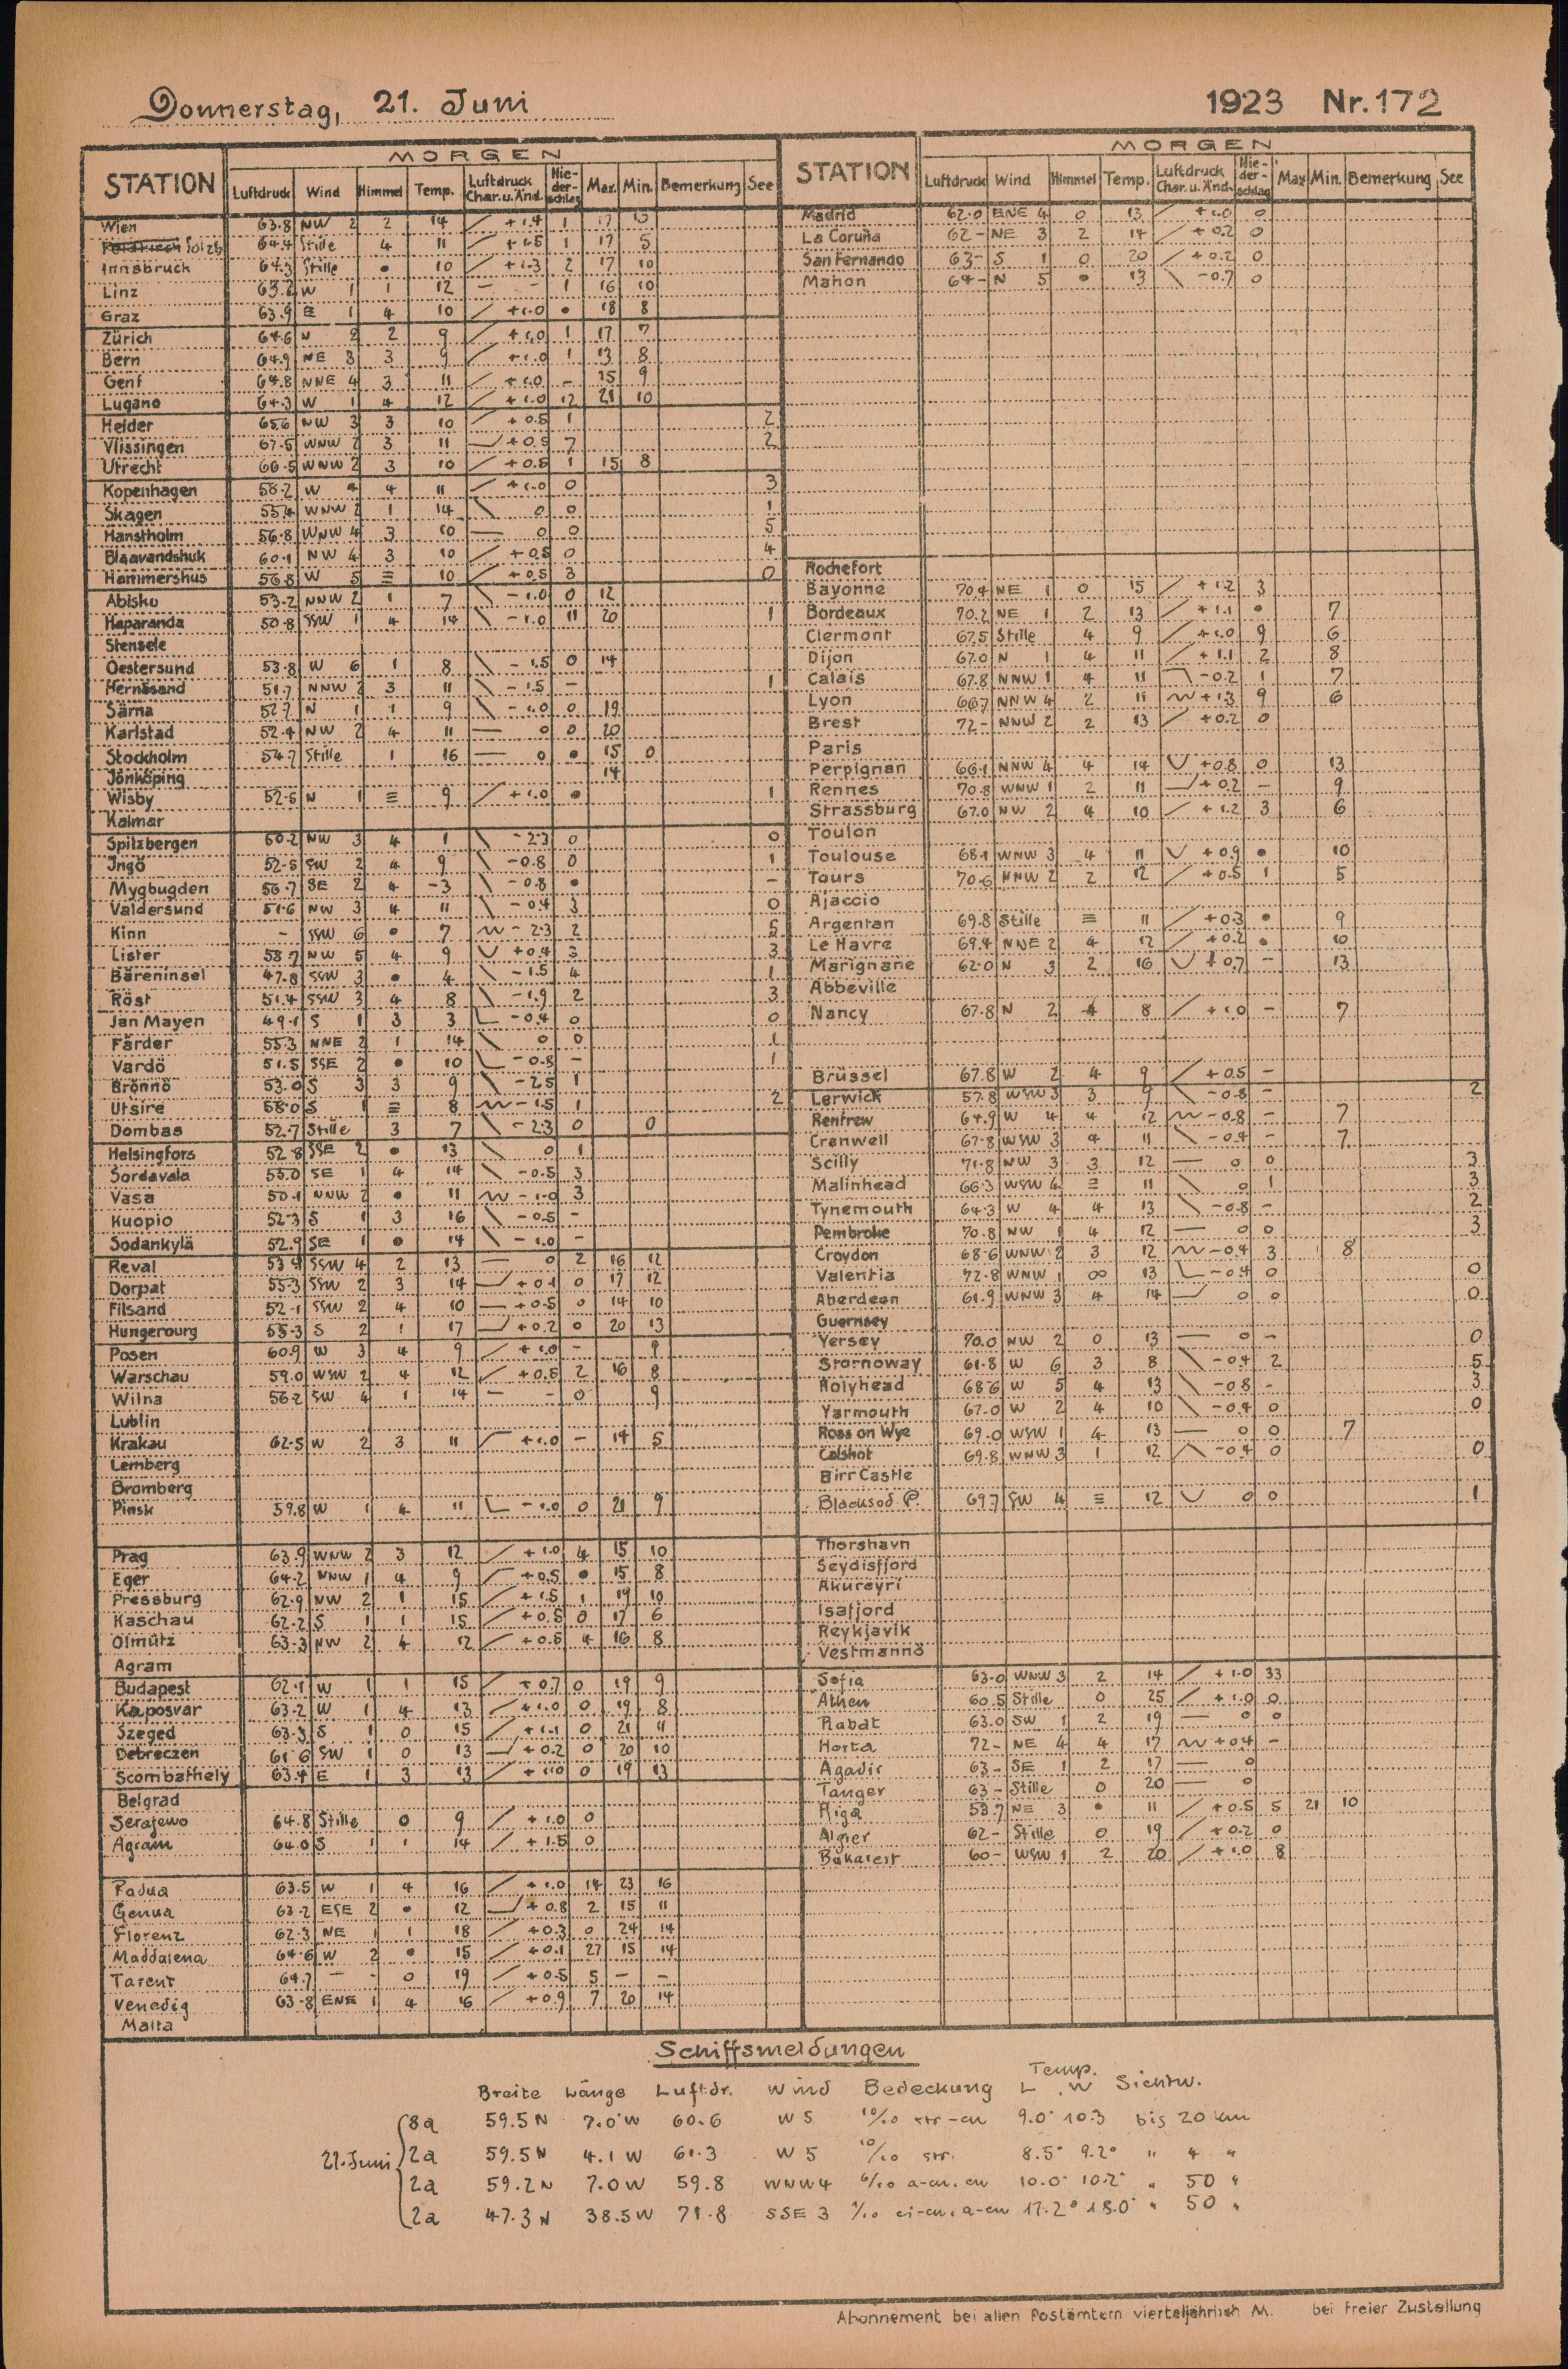 Donnerstag, 21. Juni 1923 Nr. 172
STATION MORGEN
Luftdruck Wind Himmel Temp. Luftdruck Char. u. Änd. Nie-der-schlag Max. Min. Bemerkung See
Wien 63.8 NW 2 2 14 / +1.4 1 17 13
64.4 Stille 4 11 / +1.5 1 17 5
Innsbruck 64.3 Stille • 10 / +1.3 2 17 10
Linz 63.2 W 1 1 12 – – 1 16 10
Graz 63.9 E 1 4 10 / +1.0 • 18 8
Zürich 64.6 N 2 2 9 / +1.0 1 17 7
Bern 64.9 NE 3 3 9 / +1.0 1 13 8
Genf 64.8 NNE 4 3 11 / +1.0 – 15 9
Lugano 64.3 W 1 4 12 / +1.0 12 21 10
Helder 65.6 NW 3 3 10 / +0.5 1 2
Vlissingen 67.5 WNW 2 3 11 +0.5 7 2
Utrecht 66.5 WNW 2 3 10 / +0.5 1 15 8
Kopenhagen 58.2 W 4 4 11 / +1.0 0 3
Skagen 55.4 WNW 2 1 14 \ 0 0 1
Hanstholm 56.8 WNW 4 3 10 — 0 0 5
Blaavandshuk 60.1 NW 4 3 10 / +0.5 0 4
Hammershus 56.8 W 5 ≡ 10 / +0.5 3 0
Abisko 53.2 NNW 2 1 7 \ -1.0 0 12
Haparanda 50.8 SSW 1 4 14 \ -1.0 11 20 1
Stensele
Oestersund 53.8 W 6 1 8 \ -1.5 0 14
Hernösand 51.7 NNW 2 3 11 \ -1.5 – 1
Särna 52.7 N 1 1 9 \ -1.0 0 19
Karlstad 52.4 NW 2 4 11 — 0 0 20
Stockholm 54.7 Stille 1 16 — 0 • 15 0
Jönköping 14
Wisby 52.5 N 1 ≡ 9 / +1.0 • 1
Kalmar
Spitzbergen 50.2 NW 3 4 1 \ -2.3 0 0
Ingö 52.5 SW 2 4 9 \ -0.8 0 1
Mygbugden 56.7 SE 2 4 -3 \ -0.8 • –
Valdersund 51.6 NW 3 4 11 \ -0.4 3 0
Kinn – SSW 6 • 7 -2.3 2 5
Lister 58.7 NW 5 4 9 V +0.4 3 3
Bäreninsel 47.8 SSW 3 • 4 \ -1.5 4 1
Röst 51.4 SSW 3 4 8 \ -1.9 2 3
Jan Mayen 49.1 S 1 3 3 L -0.4 0 0
Färder 55.3 NNE 2 1 14 \ 0 0 1
Vardö 51.5 SSE 2 • 10 L -0.8 – 1
Brönnö 53.0 S 3 3 9 \ -2.5 1
Utsire 58.0 S 1 ≡ 8 -1.5 1 2
Dombas 52.7 Stille 3 7 \ -2.3 0 0
Helsingfors 52.8 SSE 2 • 13 \ 0 1
Sordavala 55.0 SE 1 4 14 \ -0.5 3
Vasa 50.1 NNW 2 • 11 -1.0 3
Kuopio 52.3 S 1 3 16 \ -0.5 –
Sodankylä 52.9 SE 1 • 14 \ -1.0 –
Reval 53.9 SSW 4 2 13 — 0 2 16 12
Dorpat 55.3 SSW 2 3 14 +0.1 0 17 12
Filsand 52.1 SSW 2 4 10 — +0.5 0 14 10
Hungerburg 55.3 S 2 1 17 +0.2 0 20 13
Posen 60.9 W 3 4 9 / +1.0 – 9
Warschau 59.0 WSW 2 4 12 / +0.5 2 16 8
Wilna 56.2 SW 4 1 14 – – 0 9
Lublin
Krakau 62.5 W 2 3 11 +1.0 – 14 5
Lemberg
Bromberg
Pinsk 59.8 W 1 4 11 L -1.0 0 21 9
Prag 63.9 WNW 2 3 12 / +1.0 4 15 10
Eger 64.2 NNW 1 4 9 +0.5 • 15 8
Pressburg 62.9 NW 2 1 15 / +1.5 1 19 10
Kaschau 62.2 S 1 1 15 / +0.5 0 17 6
Olmütz 63.3 NW 2 4 12 / +0.5 4 16 8
Agram
Budapest 62.1 W 1 1 15 / +0.7 0 19 9
Kaposvar 63.2 W 1 4 13 / +1.0 0 19 8
Szeged 63.3 S 1 0 15 / +1.1 0 21 11
Debreczen 61.6 SW 1 0 13 +0.2 0 20 10
Scombathely 63.4 E 1 3 13 / +1.0 0 19 13
Belgrad
Serajewo 64.8 Stille 0 9 / +1.0 0
Agram 64.0 S 1 1 14 / +1.5 0
Padua 63.5 W 1 4 16 / +1.0 14 23 16
Genua 63.2 ESE 2 • 12 +0.8 2 15 11
Florenz 62.3 NE 1 1 18 / +0.3 0 24 14
Maddalena 64.6 W 2 • 15 / +0.1 27 15 14
Tarent 64.7 – – 0 19 / +0.5 5 – –
Venedig 63.8 ENE 1 4 16 / +0.9 7 20 14
Malta
STATION MORGEN
Luftdruck Wind Himmel Temp. Luftdruck Char. u. Änd. Nie-der-schlag Max Min. Bemerkung See
Madrid 62.0 ENE 4 0 13 / +1.0 0
La Coruña 62– NE 3 2 14 / +0.2 0
San Fernando 63– S 1 0 20 / +0.2 0
Mahon 64– N 5 • 13 \ -0.7 0
Rochefort
Bayonne 70.4 NE 1 0 15 / +1.2 3
Bordeaux 70.2 NE 1 2 13 / +1.1 • 7
Clermont 67.5 Stille 4 9 / +1.0 9 6
Dijon 67.0 N 1 4 11 / +1.1 2 8
Calais 67.8 NNW 1 4 11 -0.2 1 7
Lyon 66.7 NNW 4 2 11 +1.3 9 6
Brest 72– NNW 2 2 13 / +0.2 0
Paris
Perpignan 66.1 NNW 4 4 14 V +0.8 0 13
Rennes 70.8 WNW 1 2 11 +0.2 – 9
Strassburg 67.0 NW 2 4 10 / +1.2 3 6
Toulon
Toulouse 68.1 WNW 3 4 11 V +0.9 • 10
Tours 70.6 NNW 2 2 12 / +0.5 1 5
Ajaccio
Argentan 69.8 Stille ≡ 11 / +0.3 • 9
Le Havre 69.4 NNE 2 4 12 / +0.2 • 10
Marignane 62.0 N 3 2 16 V +0.7 – 13
Abbeville
Nancy 67.8 N 2 4 8 / +1.0 – 7
Brüssel 67.8 W 2 4 9 / +0.5 –
Lerwick 57.8 WSW 3 3 9 \ -0.8 – 2
Renfrew 64.9 W 4 4 12 -0.8 – 7
Cranwell 67.8 WSW 3 4 11 \ -0.4 – 7
Scilly 71.8 NW 3 3 12 — 0 0 3
Malinhead 66.3 WSW 4 ≡ 11 \ 0 1 3
Tynemouth 64.3 W 4 4 13 \ -0.8 – 2
Pembroke 70.8 NW 1 4 12 — 0 0 3
Croydon 68.6 WNW 2 3 12 -0.4 3 8
Valentia 72.8 WNW 1 ∞ 13 L -0.4 0 0
Aberdeen 61.9 WNW 3 4 14 0 0 0
Guernsey
Yersey 70.0 NW 2 0 13 — 0 – 0
Stornoway 61.8 W 6 3 8 \ -0.4 2 5
Holyhead 68.6 W 5 4 13 \ -0.8 – 3
Yarmouth 67.0 W 2 4 10 \ -0.4 0 0
Ross on Wye 69.0 WSW 1 4 13 — 0 0 7
Calshot 69.8 WNW 3 1 12 -0.4 0 0
Birr Castle
Blacksod P. 69.7 SW 4 ≡ 12 V 0 0 1
Thorshavn
Seydisfjord
Akureyri
Isafjord
Reykjavik
Vestmannö
Sofia 63.0 WNW 3 2 14 / +1.0 33
Athen 60.5 Stille 0 25 / +1.0 0
Rabat 63.0 SW 1 2 19 — 0 0
Horta 72– NE 4 4 17 +0.4 –
Agadir 63– SE 1 2 17 — 0
Tanger 63– Stille 0 20 — 0
Riga 53.7 NE 3 • 11 / +0.5 5 21 10
Algier 62– Stille 0 19 / +0.2 0
Bukarest 60– WSW 1 2 20 / +1.0 8
Schiffsmeldungen
Breite Länge Luftdr. Wind Bedeckung Temp. L. W Sichtw.
21. Juni
8a 59.5 N 7.0°W 60.6 W 5 10/10 str-cu 9.0° 10.3 bis 20 km
2a 59.5 N 4.1 W 61.3 W 5 10/10 str. 8.5° 9.2° " 4 "
2a 59.2 N 7.0 W 59.8 WNW 4 6/10 a-cu. cu 10.0° 10.2° " 50 "
2a 47.3 N 38.5 W 71.8 SSE 3 1/10 ci-cu. a-cu 17.2° 18.0° " 50 "
Abonnement bei allen Postämtern vierteljährlich M. bei freier Zustellung